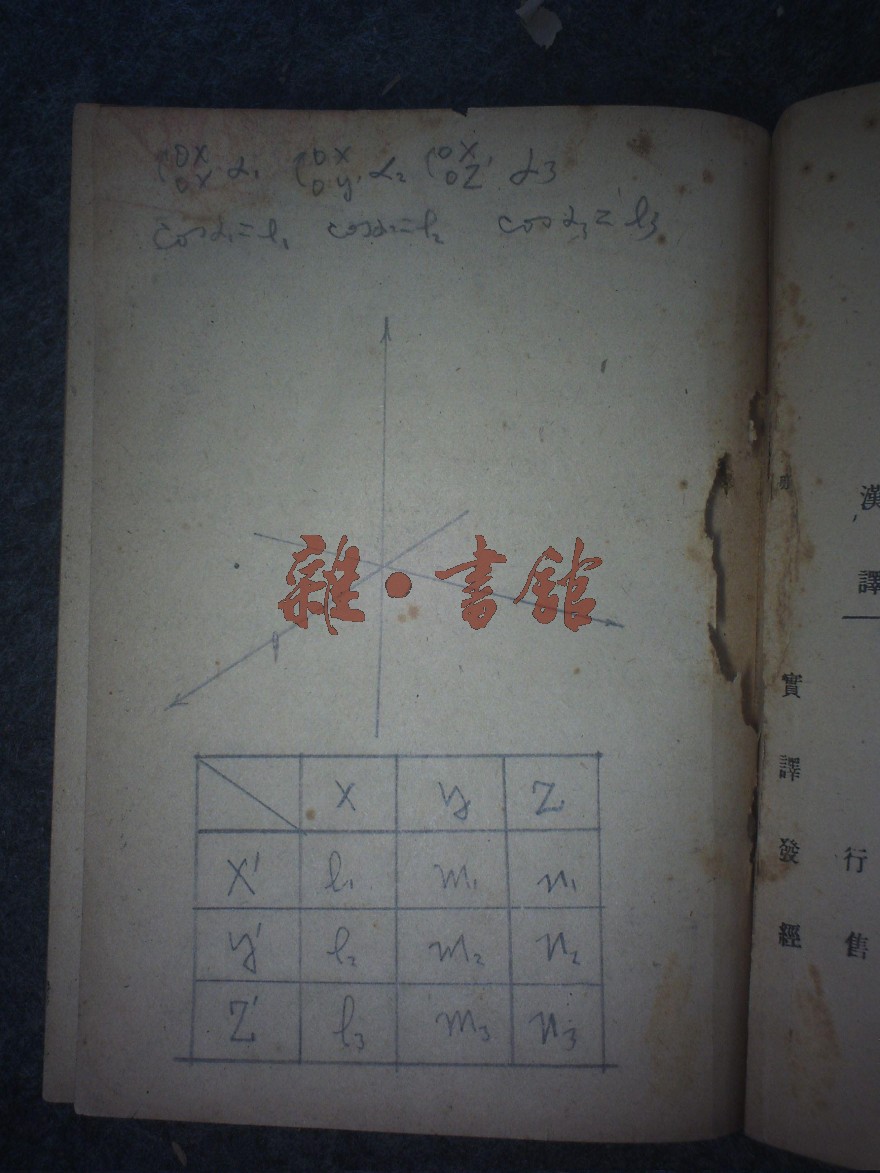 OX OX' α₁ OX OY' α₂ OX OZ' α₃
cosα₁=l₁ cosα₂=l₂ cosα₃=l₃
雜·書館
X y Z
X' l₁ m₁ n₁
y' l₂ m₂ n₂
Z' l₃ m₃ n₃
漢譯
實譯發經
行售